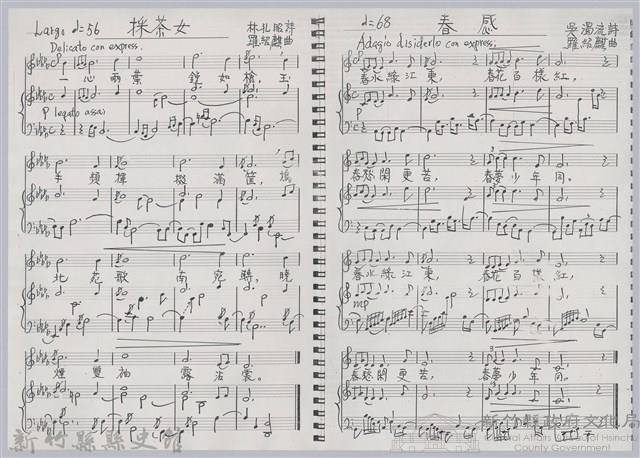 Largo ♩=56 採茶女
林扎眼詩
羅紹麒曲
Delicato con express.
一心兩葉 鏡如檢,玉
P legato assai
手頻揮 掇滿筐,
北苑歌 南窓聯,曉
煙雙袖 露沾裳。
♩=68 春感
吳濁流詩
羅紹麒曲
Adagio disiderlo con express.
春水綠江東, 春花百樣紅,
P
春愁閑更苦, 春夢少年同。
春水綠江東, 春花百樣紅,
mp
春愁閑更苦, 春夢少年同。
新竹縣縣史館
新竹縣政府文化局
Cultural Affairs Bureau of Hsinchu
County Government